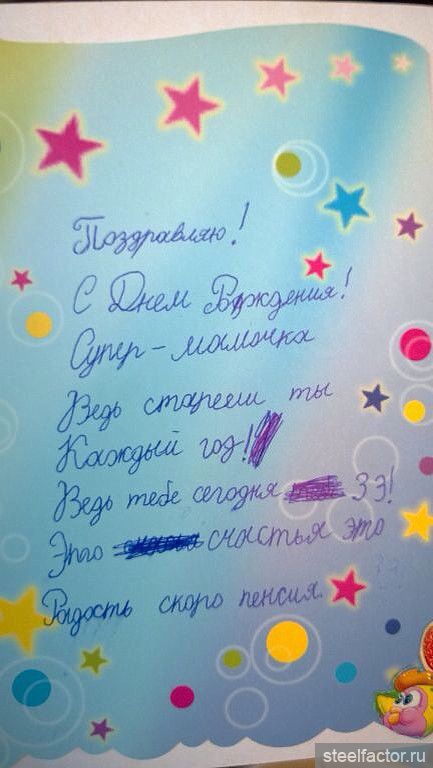 Поздравляю!
С Днем Рождения!
Супер-мамочка
Ведь стареешь ты
Каждый год!
Ведь тебе сегодня 33!
Это счастья это
Радость скоро пенсия.
steelfactor.ru